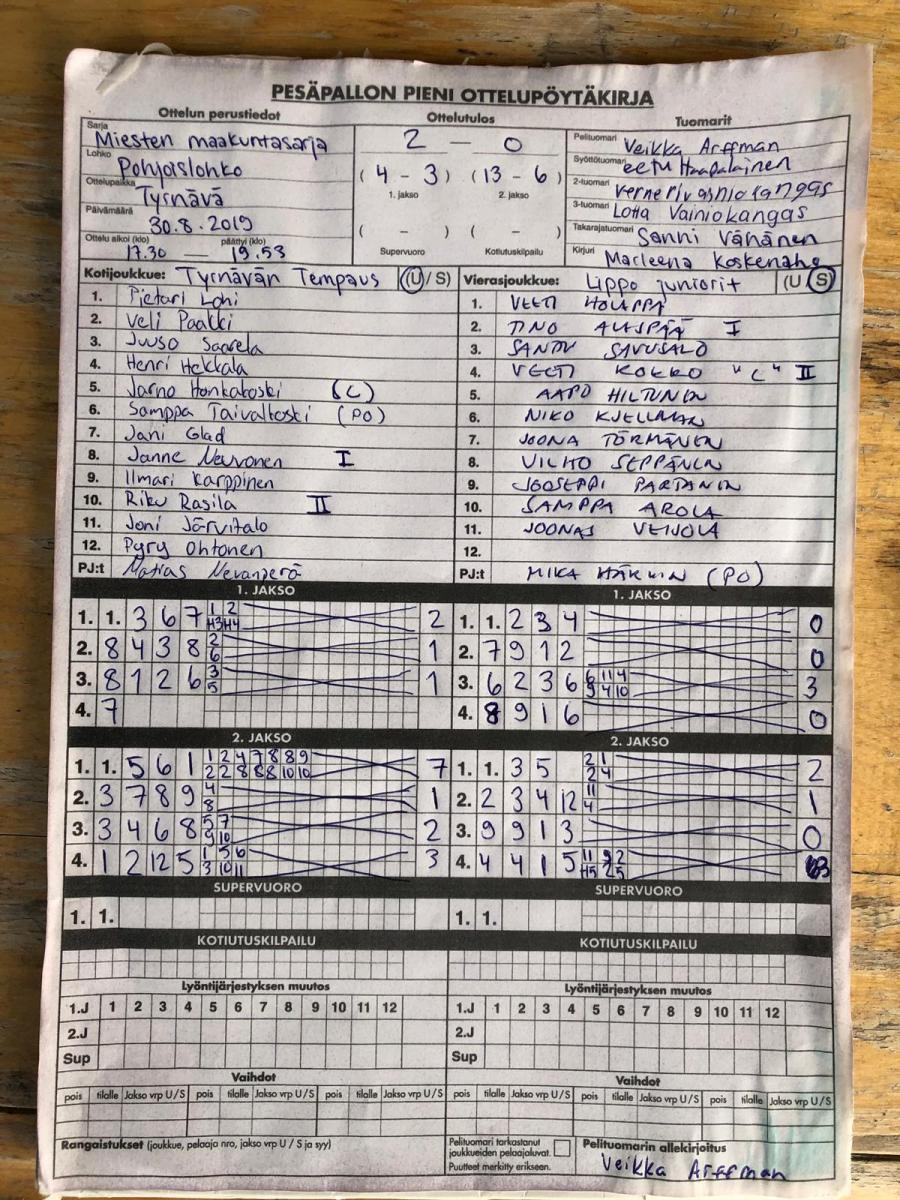 PESÄPALLON PIENI OTTELUPÖYTÄKIRJA
Ottelun perustiedot
Sarja
Miesten maakuntasarja
Lohko
Pohjoislohko
Ottelupaikka
Tyrnävä
Päivämäärä
30.8.2019
Ottelu alkoi (klo) päättyi (klo)
17.30 — 19.53
Ottelutulos
2 — 0
(4 - 3) (13 - 6)
1. jakso 2. jakso
( - ) ( - )
Supervuoro Kotiutuskilpailu
Tuomarit
Pelituomari Veikka Arffman
Syöttötuomari eetu Haapalainen
2-tuomari verneri vasniokangas
3-tuomari Lotta Vainiokangas
Takarajatuomari Sanni Vähänen
Kirjuri Marleena Koskenahe
Kotijoukkue: Tyrnävän Tempaus (U / S)
1. Pietari Lohi
2. Veli Paakki
3. Juuso Saarela
4. Henri Hekkala
5. Jarno Honkakoski (C)
6. Samppa Taivalkoski (PO)
7. Jani Glad
8. Janne Neuvonen I
9. Ilmari Karppinen
10. Riku Rasila II
11. Joni Järvitalo
12. Pyry Ohtonen
PJ:t Matias Nevanperä
Vierasjoukkue: Lippo juniorit (U S)
1. VEETI HOLAPPA
2. TINO ALASPÄÄ I
3. SANTU SAVUSALO
4. VEETI KOKKO "C" II
5. AAPO HILTUNEN
6. NIKO KJELLMAN
7. JOONA TÖRMÄNEN
8. VILHO SEPPÄNEN
9. JOOSEPPI PARTANEN
10. SAMPPA AROLA
11. JOONAS VEIJOLA
12.
PJ:t MIKA HÄKKIN (PO)
1. JAKSO
1. 1. 3 6 7 1 2 H3 H4 2
2. 8 4 3 8 2 6 1
3. 8 1 2 6 3 5 1
4. 7
1. JAKSO
1. 1. 2 3 4 0
2. 7 9 1 2 0
3. 6 2 3 6 6 11 4 9 4 10 3
4. 8 9 1 6 0
2. JAKSO
1. 1. 5 6 1 1 2 4 7 8 8 9 2 2 8 8 8 10 10 7
2. 3 7 8 9 4 8 1
3. 3 4 6 8 5 7 9 10 2
4. 1 2 12 5 1 5 6 3 10 11 3
2. JAKSO
1. 1. 3 5 2 1 2 4 2
2. 2 3 4 12 11 4 1
3. 9 9 1 3 0
4. 4 4 1 5 11 9 2 H5 2 5 3
SUPERVUORO
1. 1.
SUPERVUORO
1. 1.
KOTIUTUSKILPAILU
KOTIUTUSKILPAILU
Lyöntijärjestyksen muutos
1.J 1 2 3 4 5 6 7 8 9 10 11 12
2.J
Sup
Lyöntijärjestyksen muutos
1.J 1 2 3 4 5 6 7 8 9 10 11 12
2.J
Sup
Vaihdot
pois tilalle Jakso vrp U/S pois tilalle Jakso vrp U/S pois tilalle Jakso vrp U/S
Vaihdot
pois tilalle Jakso vrp U/S pois tilalle Jakso vrp U/S pois tilalle Jakso vrp U/S
Rangaistukset (joukkue, pelaaja nro, jakso vrp U / S ja syy)
Pelituomari tarkastanut
joukkueiden pelaajaluvat.
Puutteet merkitty erikseen.
Pelituomarin allekirjoitus
Veikka Arffman